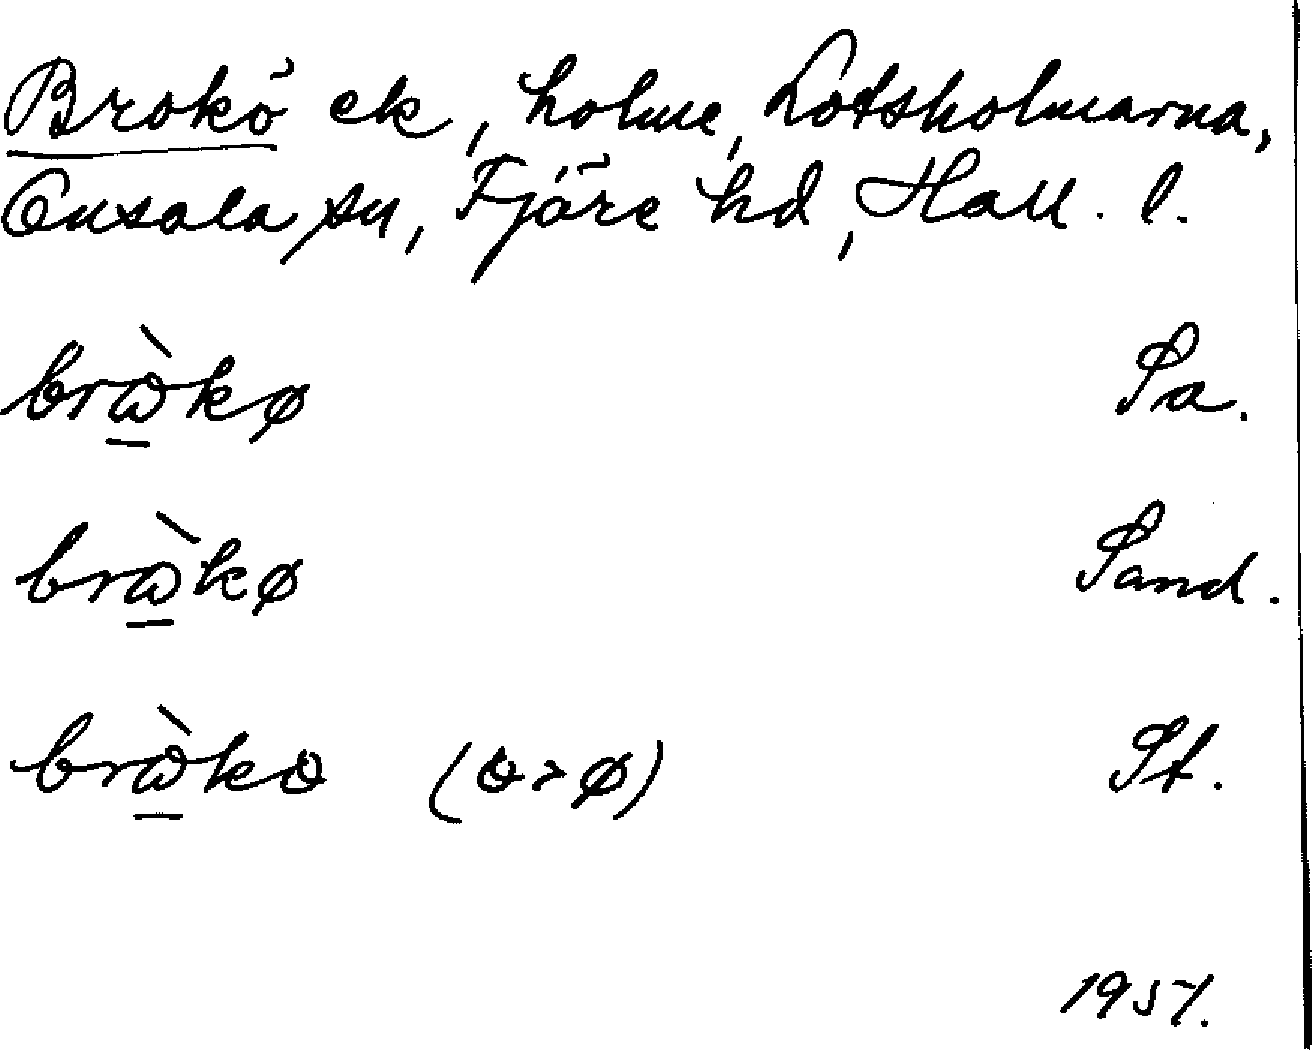 Brokö ek, holme, Lotsholmarna,
Onsala sn, Fjäre hd, Hall. l.
brὼkø Sa.
brὼkø Sand.
brὼkɷ (ɷ > ø) St.
1957.